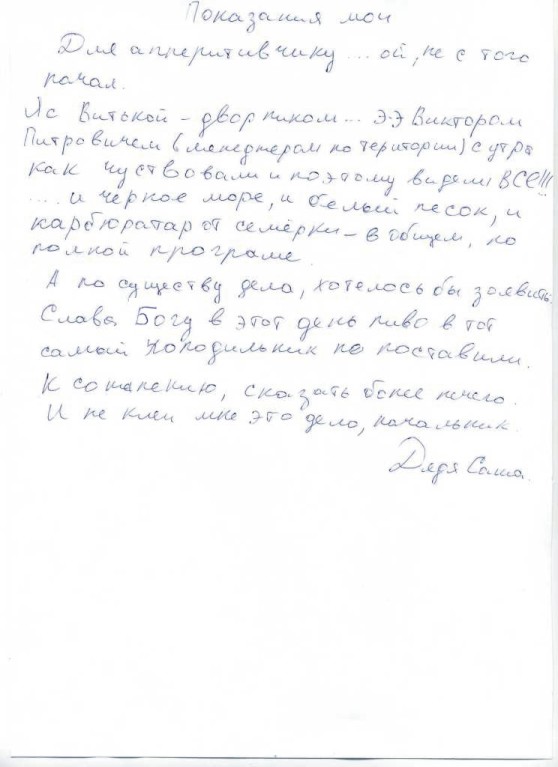 Показания мои
Для апперитивчику ... ой, не с того
начал.
Я с Витькой - дворником ... Э-Э Виктором
Питровичем (менеджером по територии) с утра
как чуствовали и поэтому видели ВСЁ!!!
.... и черное море, и белый песок, и
карбюратар от семёрки - в общем, по
полной програме.
А по существу дела, хотелось бы заявить:
Слава Богу в этот день пиво в тот
самый холодильник не поставили.
К сожалению, сказать более нечего.
И не клеи мне это дело, начальник.
Дядя Саша.